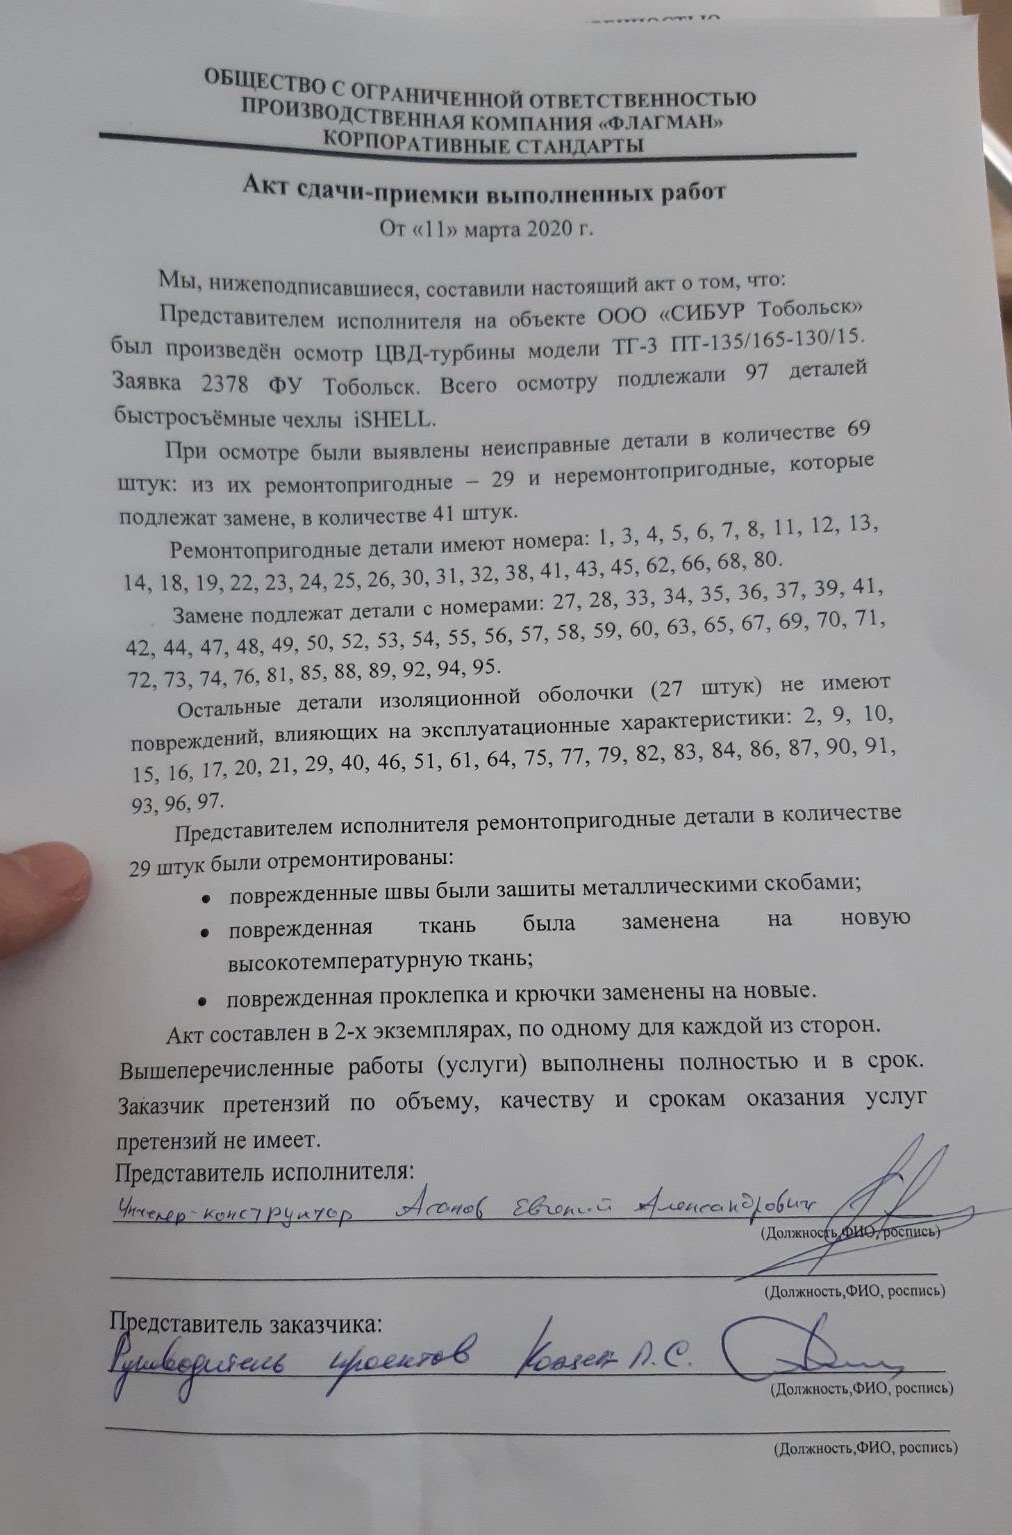 ОБЩЕСТВО С ОГРАНИЧЕННОЙ ОТВЕТСТВЕННОСТЬЮ
ПРОИЗВОДСТВЕННАЯ КОМПАНИЯ «ФЛАГМАН»
КОРПОРАТИВНЫЕ СТАНДАРТЫ
Акт сдачи-приемки выполненных работ
От «11» марта 2020 г.
Мы, нижеподписавшиеся, составили настоящий акт о том, что:
Представителем исполнителя на объекте ООО «СИБУР Тобольск»
был произведён осмотр ЦВД-турбины модели ТГ-3 ПТ-135/165-130/15.
Заявка 2378 ФУ Тобольск. Всего осмотру подлежали 97 деталей
быстросъёмные чехлы iSHELL.
При осмотре были выявлены неисправные детали в количестве 69
штук: из их ремонтопригодные – 29 и неремонтопригодные, которые
подлежат замене, в количестве 41 штук.
Ремонтопригодные детали имеют номера: 1, 3, 4, 5, 6, 7, 8, 11, 12, 13,
14, 18, 19, 22, 23, 24, 25, 26, 30, 31, 32, 38, 41, 43, 45, 62, 66, 68, 80.
Замене подлежат детали с номерами: 27, 28, 33, 34, 35, 36, 37, 39, 41,
42, 44, 47, 48, 49, 50, 52, 53, 54, 55, 56, 57, 58, 59, 60, 63, 65, 67, 69, 70, 71,
72, 73, 74, 76, 81, 85, 88, 89, 92, 94, 95.
Остальные детали изоляционной оболочки (27 штук) не имеют
повреждений, влияющих на эксплуатационные характеристики: 2, 9, 10,
15, 16, 17, 20, 21, 29, 40, 46, 51, 61, 64, 75, 77, 79, 82, 83, 84, 86, 87, 90, 91,
93, 96, 97.
Представителем исполнителя ремонтопригодные детали в количестве
29 штук были отремонтированы:
• поврежденные швы были зашиты металлическими скобами;
• поврежденная ткань была заменена на новую
высокотемпературную ткань;
• поврежденная проклепка и крючки заменены на новые.
Акт составлен в 2-х экземплярах, по одному для каждой из сторон.
Вышеперечисленные работы (услуги) выполнены полностью и в срок.
Заказчик претензий по объему, качеству и срокам оказания услуг
претензий не имеет.
Представитель исполнителя:
Инженер-конструктор Аганов Евгений Александрович
(Должность,ФИО, роспись)
(Должность,ФИО, роспись)
Представитель заказчика:
Руководитель проектов Л.С.
(Должность,ФИО, роспись)
(Должность,ФИО, роспись)